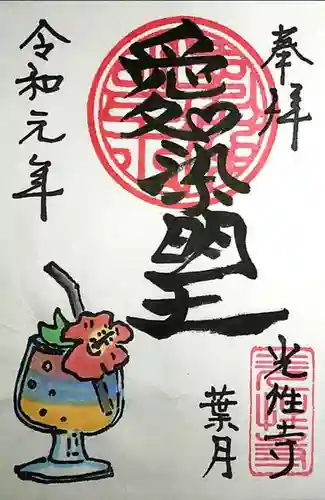 奉拝
愛染明王
令和元年
葉月
光性寺